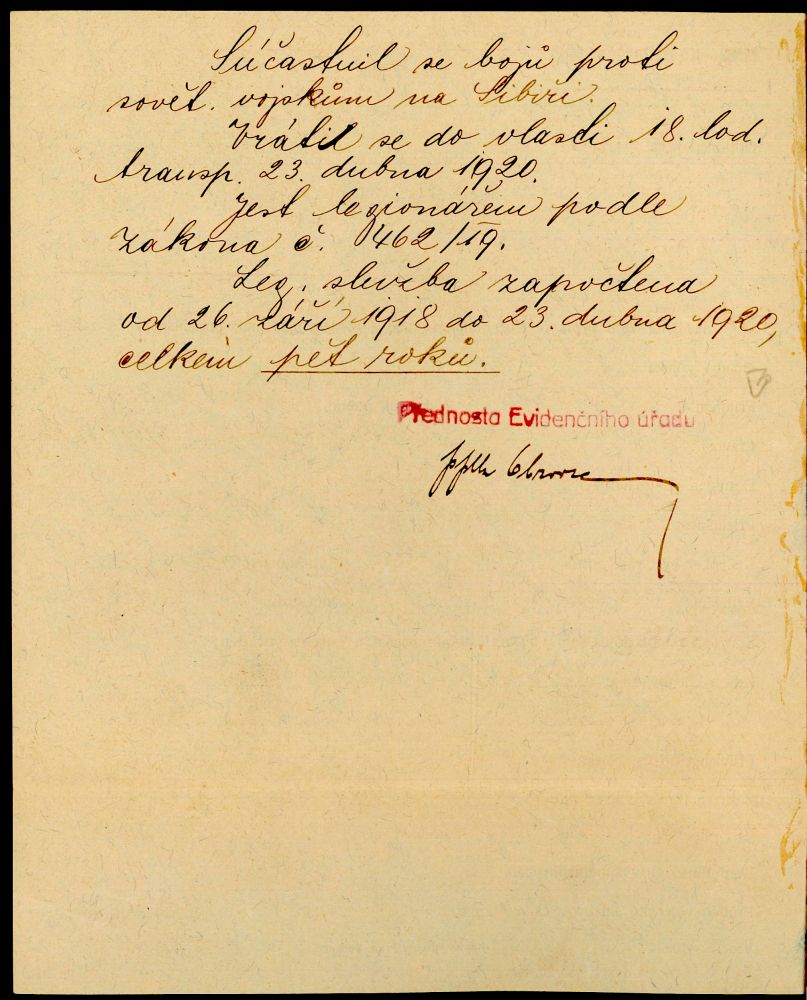 Súčastnil se bojů proti
sovět. vojskům na Sibiři.
Vrátil se do vlasti 18. lod.
transp. 23. dubna 1920.
Jest legionářem podle
zákona č. 462/19.
Leg. služba započtena
od 26. září 1918 do 23. dubna 1920,
celkem pět roků.
Přednosta Evidenčního úřadu
pplk